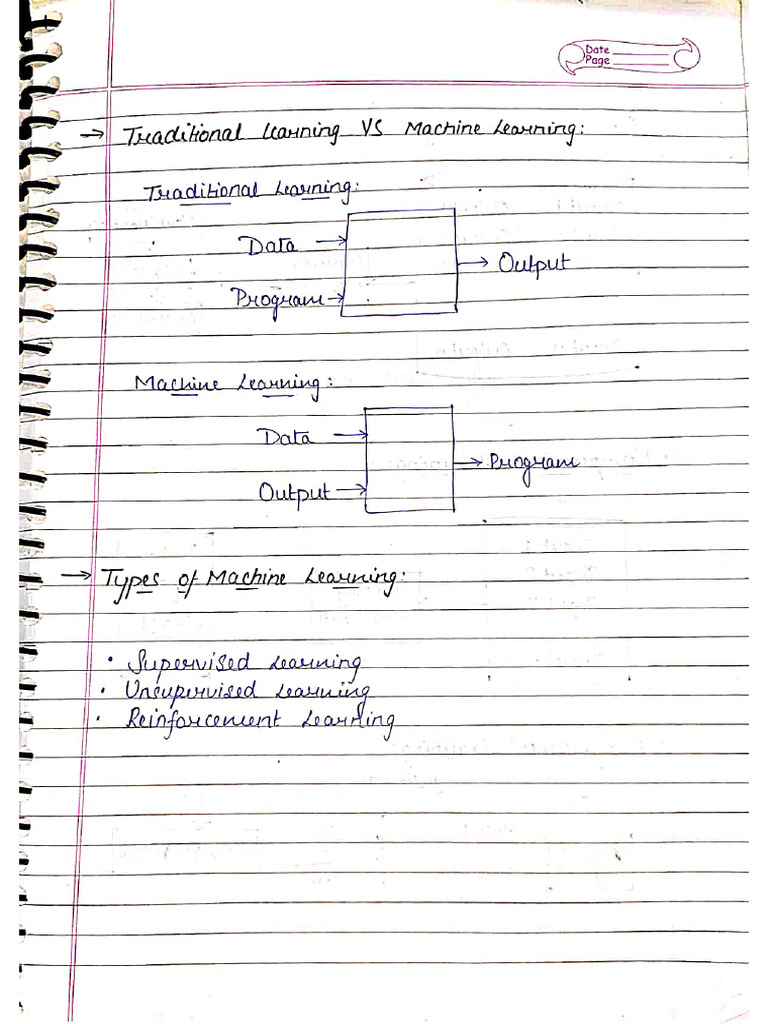 Date
Page
→ Traditional Learning VS Machine Learning:
Traditional Learning:
Data →
→ Output
Program →
Machine Learning:
Data →
→ Program
Output →
→ Types of Machine Learning:
• Supervised Learning
• Unsupervised Learning
• Reinforcement Learning